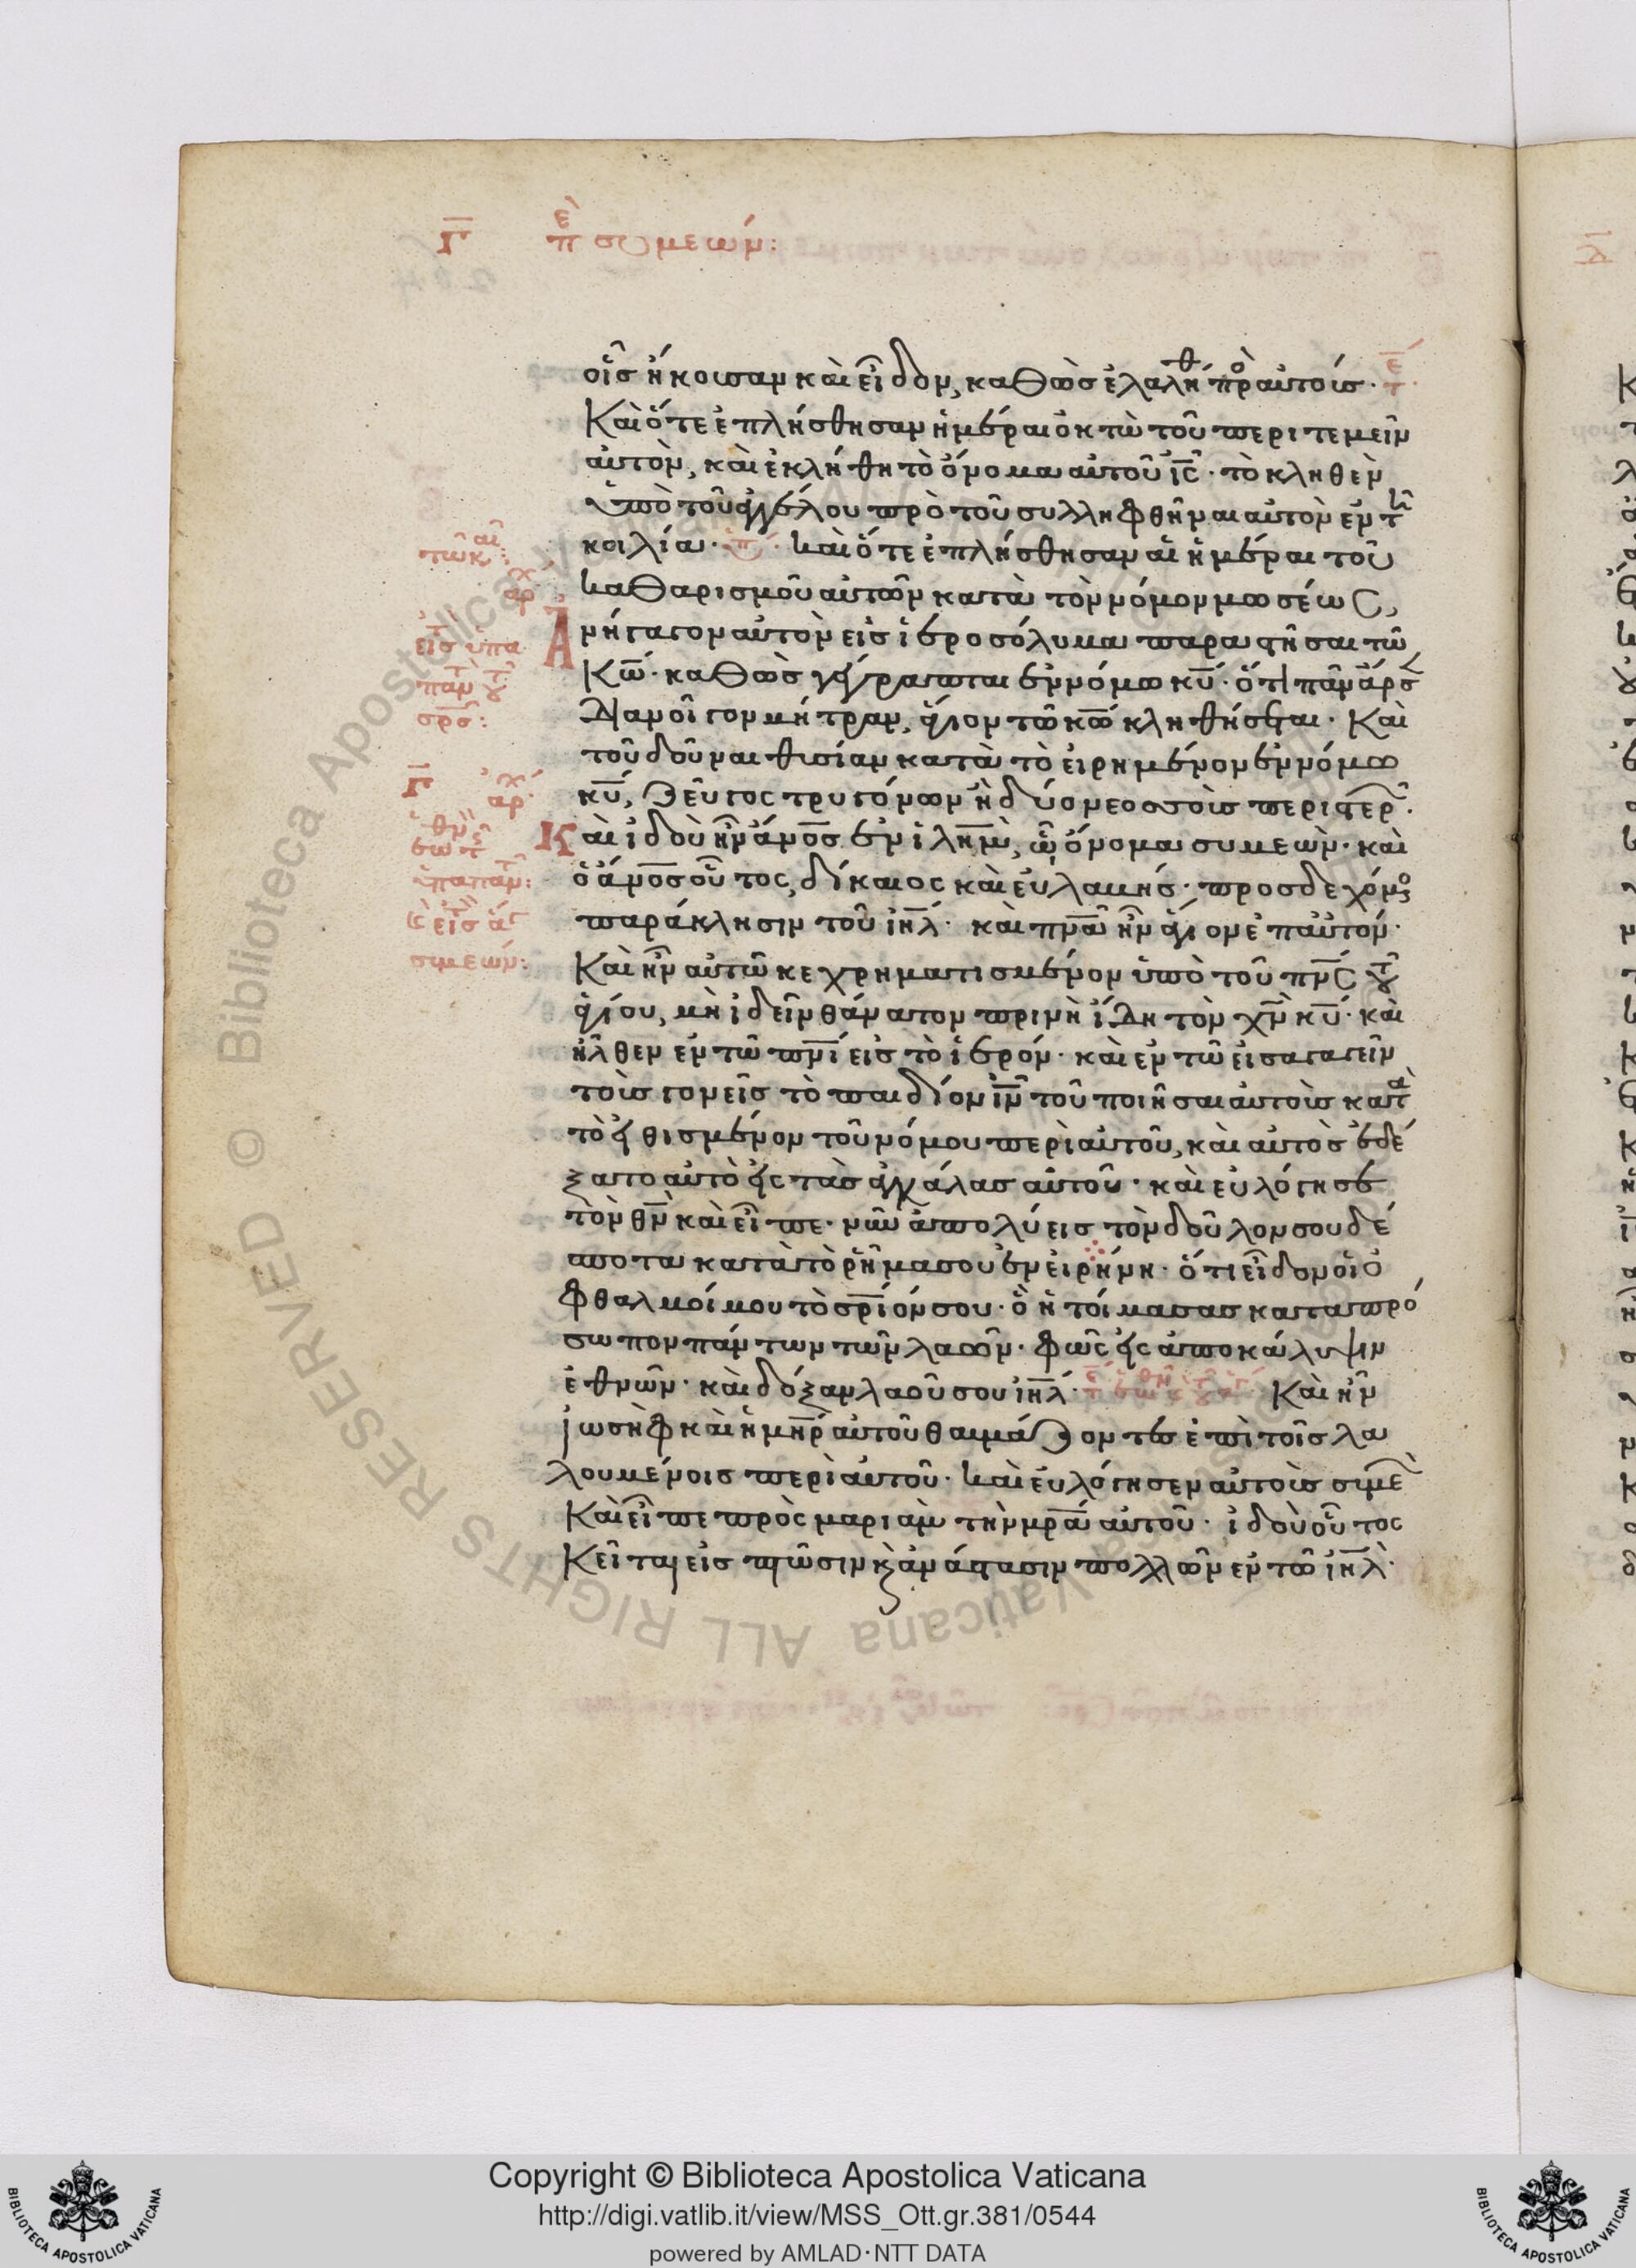 Γ̅ πε συμεών:
οἷς ἤκουσαν καὶ εἶδον, καθὼς ἐλαλήθ πρὸ αὐτούς. τε
Καὶ ὅτε ἐπλήσθησαν ἡμέραι ὀκτὼ τοῦ περιτεμεῖν
αὐτὸν, καὶ ἐκλήθη τὸ ὄνομα αὐτοῦ ι̅ς̅. τὸ κληθὲν
ὑπὸ τοῦ ἀγγέλου πρὸ τοῦ συλληφθῆναι αὐτὸν ἐν τῆ
κοιλία. καὶ ὅτε ἐπλήσθησαν αἱ ἡμέραι τοῦ
καθαρισμοῦ αὐτῶν κατὰ τὸν νόμον μωσέως,
Ἀνήγαγον αὐτὸν εἰς ἱεροσόλυμα παραστῆσαι τῶ
κ̅ω̅. καθὼς γέγραπται ἐν νόμω κ̅υ̅. ὅτι πᾶν ἄρσ
διανοῖγον μήτραν, ἅγιον τῶ κ̅ω̅ κληθήσεται. Καὶ
τοῦ δοῦναι θυσίαν κατὰ τὸ εἰρημένον ἐν νόμω
κ̅υ̅, ζεῦγος τρυγόνων ἢ δύο νεοσσοὺς περιστερ.
Καὶ ἰδοὺ ἦν ἄ̅ν̅ο̅ς̅ ἐν ἰ̅λ̅η̅μ̅, ὧ ὄνομα συμεὼν. καὶ
ὁ ἄ̅ν̅ο̅ς̅ οὗτος, δίκαιος καὶ εὐλαβής. προσδεχόμενος
παράκλησιν τοῦ ι̅η̅λ̅. καὶ π̅ν̅α̅ ἦν ἅγιον ἐπ αὐτόν.
Καὶ ἦν αὐτῶ κεχρηματισμένον ὑπὸ τοῦ π̅ν̅ς̅ τοῦ
ἁγίου, μὴ ἰδεῖν θάνατον πρὶν ἢ ἴδη τὸν χ̅ν̅ κ̅υ̅. καὶ
ἦλθεν ἐν τῶ π̅ν̅ι̅ εἰς τὸ ἱερόν. καὶ ἐν τῶ εἰσαγαγεῖν
τοὺς γονεῖς τὸ παιδίον ι̅ν̅ τοῦ ποιῆσαι αὐτοὺς κατὰ
τὸ εἰθισμένον τοῦ νόμου περὶ αὐτοῦ, καὶ αὐτὸς ἐδέ
ξατο αὐτὸ εἰς τὰς ἀγκάλας αὐτοῦ. καὶ εὐλόγησε
τὸν θ̅ν̅ καὶ εἶπε. νῦν ἀπολύεις τὸν δοῦλον σου δέ
σποτα κατὰ τὸ ῥῆμα σου ἐν εἰρήνη. ὅτι εἶδον οἱ ὀ
φθαλμοί μου τὸ σ̅ρ̅ι̅όν σου. ὃ ἡτοίμασας κατὰ πρό
σωπον πάντων τῶν λαῶν. φῶς εἰς ἀποκάλυψιν
ἐθνῶν. καὶ δόξαν λαοῦ σου ι̅η̅λ̅. Καὶ ἦν
ἰωσὴφ καὶ ἡ μ̅η̅ρ̅ αὐτοῦ θαυμάζοντες ἐπὶ τοῖς λα
λουμένοις περὶ αὐτοῦ. καὶ εὐλόγησεν αὐτοὺς συμε
Καὶ εἶπε πρὸς μαριὰμ τὴν μ̅ρ̅α̅ αὐτοῦ. ἰδοὺ οὗτος
Κεῖται εἰς πτῶσιν κ̀ ἀνάστασιν πολλῶν ἐν τῶ ι̅η̅λ̅.
εἰς ὑπα
παν τοῦ
σ̅ρ̅ς̅:
Γ̅ ἀρχ
ὑπαπαν:
συμεών:
Copyright © Biblioteca Apostolica Vaticana
http://digi.vatlib.it/view/MSS_Ott.gr.381/0544
powered by AMLAD·NTT DATA
BIBLIOTECA APOSTOLICA VATICANA
BIBLIOTECA APOSTOLICA VATICANA
© Biblioteca Apostolica Vaticana ALL RIGHTS RESERVED